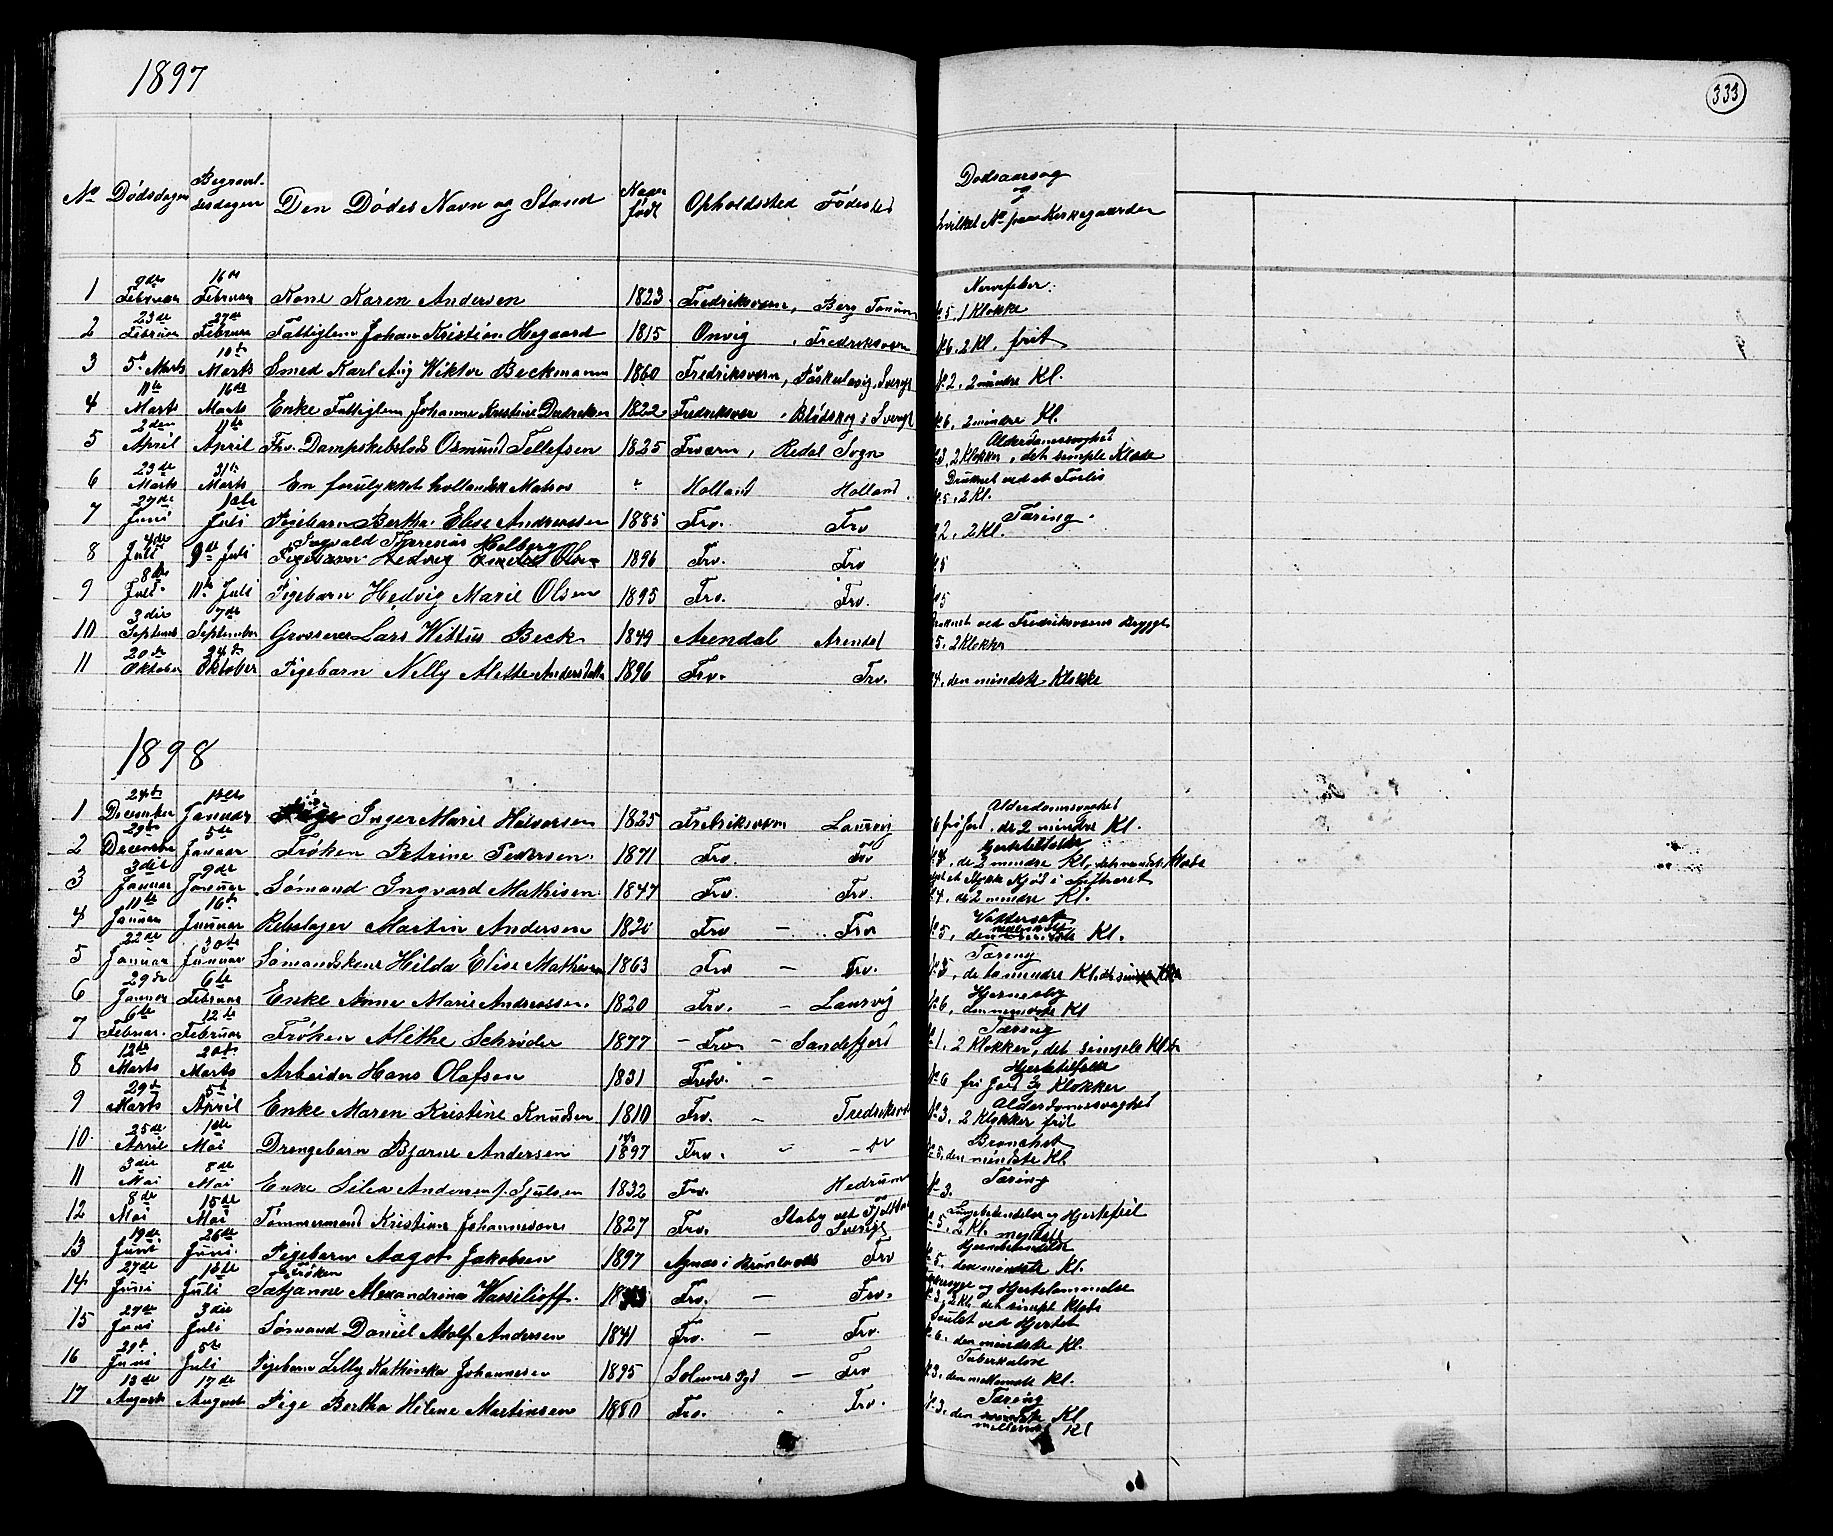 1897
333
No Dødsdagen Begravelsesdagen Den Dødes Navn og Stand Naar født Opholdssted Fødested Dødsaarsag og hvilket No paa Kirkegaarden
1 9de Februar 16de Februar Kone Karen Andersen 1823 Fredriksværn, Berg Tanum Nervefeber. No 5, 1 Klokke
2 23de Februar 27de Februar Fattiglem Johan Kristian Hegaard 1815 Onvig Fredriksværn No 6, 2 Kl. frit
3 5te Marts 10de Marts Smed Karl Aug Wiktor Beckmann 1860 Fredriksværn, Sverge No 2, 2 mindre Kl.
4 11te Marts 16de Marts Enke Fattiglem Johanne Kristine 1822 Fredriksvær i Sverge No 6, 2 mindre Kl.
5 2den April 11te April Fhv. Osmund Tellefsen 1825 Frværn, Redal Sogn Alderdomssvaghed No 3, 2 Klokker, det simple Klæde
6 23de Marts 31te Marts En forulykket hollandsk Matros " Holland Holland Druknet ved et Forlis No 5, 2 Kl.
7 27de Juni 1ste Juli Pigebarn Bertha Elise Andreassen 1885 Frv. Frv Tæring. 2, 2 Kl.
8 4de Juli 9de Juli Ingvald Holberg
Pigebarn Hedvig Olsen 1896 Frv. Frv No 5
9 8de Juli 11te Juli Pigebarn Hedvig Marie Olsen 1895 Frv. Frv. No 5
10 3die Septemb 7de September Grosserer Lars Wittus Beck 1849 Arendal Arendal Druknet ved Fredriksværns Brygge 5, 2 Klokker
11 20de Oktober 24de Oktober Pigebarn Nelly Alette 1896 Frv. Frv. 4, den mindste Klokke
1898
1 24de December 1ste Januar Pige Inger Marie Halvorsen 1825 Fredriksværn Laurvig Alderdomssvaghed 6 fri Jord, de 2 mindre Kl.
2 29de December 5te Januar Frøken Petrine Pedersen 1871 Frv. Frv Hjertetilfælde de 2 mindre Kl, Klæde
3 3die Januar 9de Januar Sømand Ingvard Mathisen 1847 Frv. Frv. et Stykke Kjød i Luftrøret 4, de 2 mindre Kl.
4 11te Januar 16de Januar Rebslager Martin Andersen 1820 Frv — Frv Vattersot No 5, den mindste Kl.
5 22de Januar 30te Januar Sømandskone Hilda Elise Mathisen 1863 Frv — Frv. Tæring de to mindre Kl.
6 29de Januar 6te Februar Enke Anne Marie Andreassen 1820 Frv. — Laurvig Hjerneslag No 6, den mindste Kl
7 6te Februar. 12te Februar Frøken Alethe Schrøder 1877 — Frv — Sandefjord Tæring No 1, 2 Klokker, det simple Klæde
8 12te Marts 20de Marts Arbeider Hans Olafsen 1831 Fredv. — Hjertetilfælde No 6 fri Jord Klokker
9 29de Marts 5te April Enke Maren Kristine Knudsen 1810 Frv. — Fredriksv Alderdomssvaghed No 3, 2 Klokker frit
10 25de April 1ste Mai Drengebarn Bjarne Andersen 1897 Frv. — Frv Bronchit No 5, den mindste Kl
11 3die Mai 8de Mai Enke Andersen f. 1832 Frv. Hedrum Tæring No 3.
12 8de Mai 15de Mai Tømmermand Kristian Johannesson 1827 Frv. Staby Sverige og Hjertefeil No 5, 2 Kl.
13 19de Juni 26de Juni Pigebarn Aagot Jakobsen 1897 Agnæs i Brunlanæs Frv No 5. den mindste Kl.
14 27de Juni 1ste Juli Frøken
Tatjanne Alexandrine Wassilioff. Frv. — Frv. og Hjertelammelse 3, 2 Kl. det simple Klæde
15 27de Juni 3die Juli Sømand Daniel Adolf Andersen 1841 Frv. — Frv. ved Hjertet No 6. den mindste Kl.
16 29de Juni 5te Juli Pigebarn Lilly Kathinka Johannessen 1895 — Frv Tuberkulose 3, den mellemste Kl.
17 13de August 17de August Pige Bertha Helene Martinsen 1880 Frv. — Frv. Tæring No 3, den mindste Kl
mellemste Kl